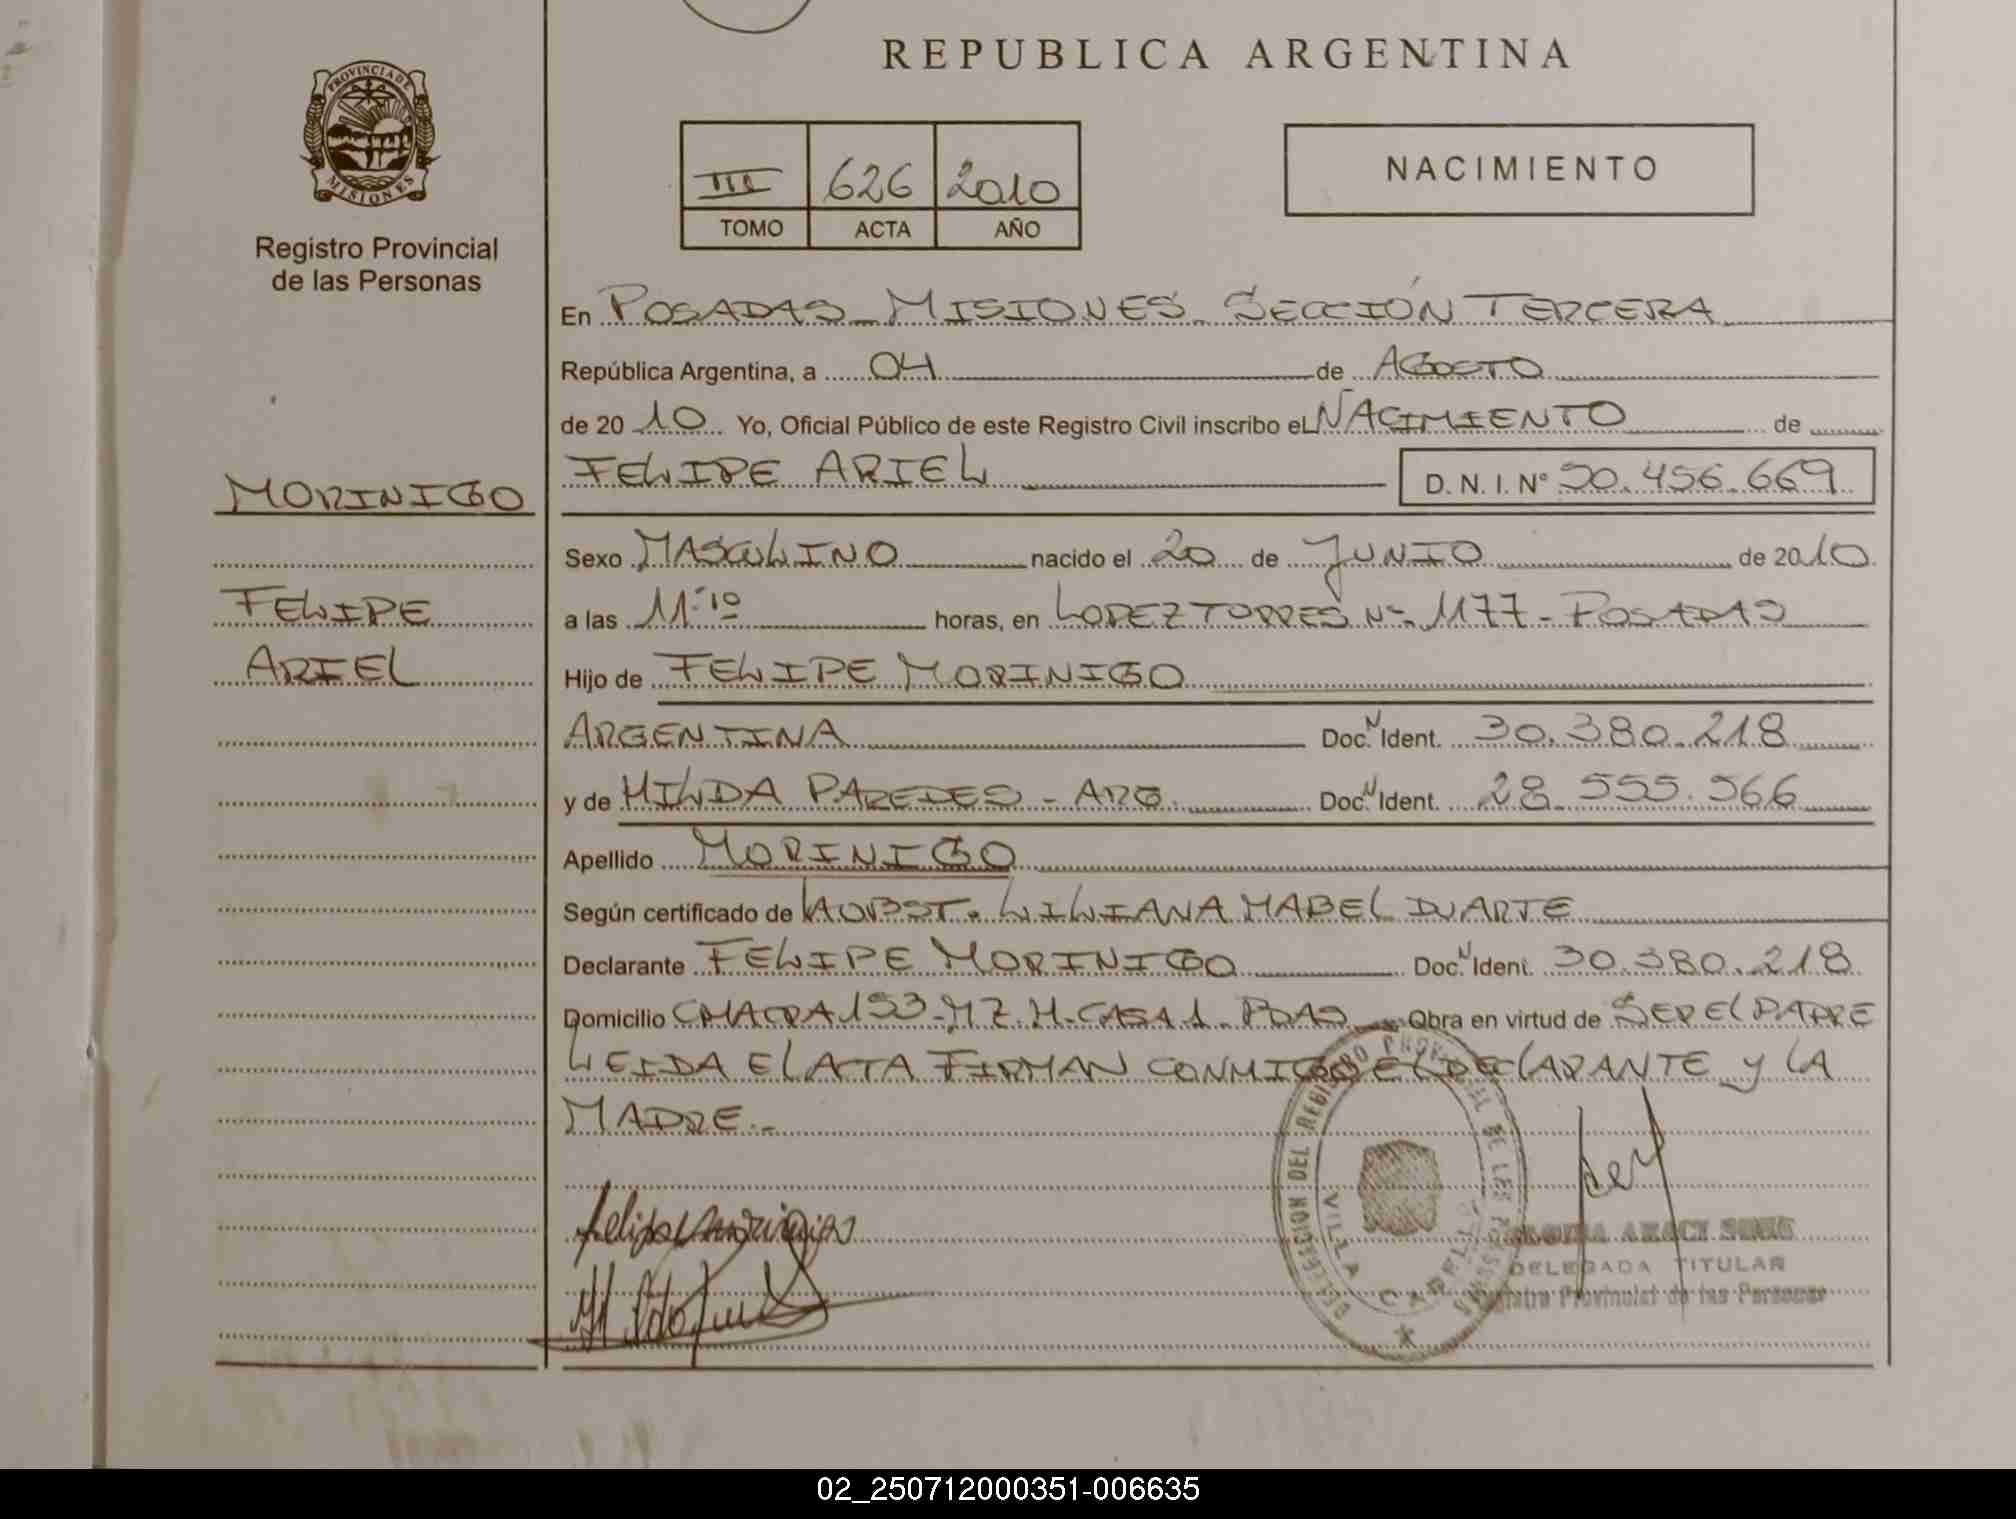 REPUBLICA ARGENTINA
PROVINCIA DE
MISIONES
Registro Provincial
de las Personas
III 626 2010
TOMO ACTA AÑO
NACIMIENTO
En POSADAS - MISIONES - SECCIÓN TERCERA
República Argentina, a 04 de AGOSTO
de 20 10 Yo, Oficial Público de este Registro Civil inscribo el NACIMIENTO de
FELIPE ARIEL D. N. I. N° 50.456.669
MORINIGO
FELIPE
ARIEL
Sexo MASCULINO nacido el 20 de JUNIO de 2010
a las 11:10 horas, en LOPEZ TORRES N° 1177 - POSADAS
Hijo de FELIPE MORINIGO
ARGENTINA Doc. N Ident. 30.380.218
y de HILDA PAREDES - ARG. Doc. N Ident. 28.555.566
Apellido MORINIGO
Según certificado de LA OBST. LILIANA MABEL DUARTE
Declarante FELIPE MORINIGO Doc. N Ident. 30.380.218
Domicilio CHACRA 153 - MZ. H - CASA 1 - PDAS Obra en virtud de SER EL PADRE
LEIDA EL ACTA FIRMAN CONMIGO EL DECLARANTE Y LA
MADRE.-
DELEGACION DEL REGISTRO PROVINCIAL DE LAS PERSONAS
VILLA CABELLO
DELEGADA TITULAR
Registro Provincial de las Personas
02_250712000351-006635